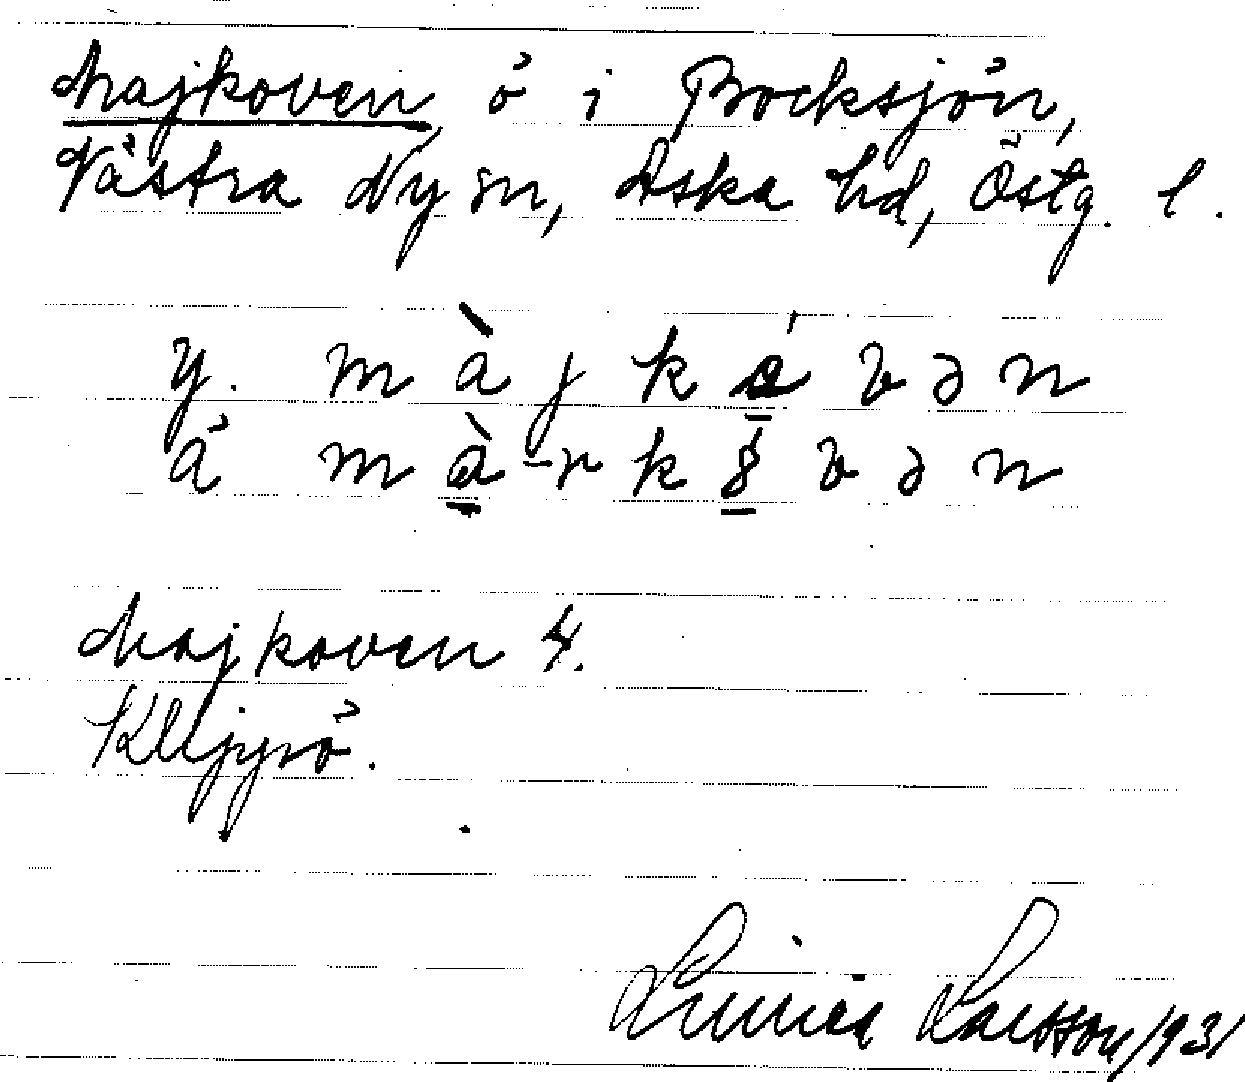 Majkoven, ö i Bocksjön,
Västra Ny sn, Aska hd, Östg. l.
y. màjkóvən
ä mà-rkśvən
Majkoven 4.
Klippö.
Linnéa Larsson/1931